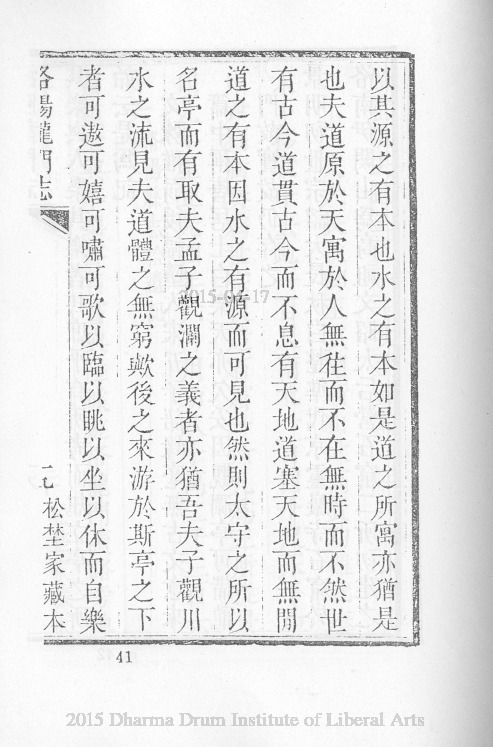 以其源之有本也水之有本如是道之所寓亦猶是
也夫道原於天寓於人無徃而不在無時而不然世
有古今道貫古今而不息有天地道塞天地而無間
道之有本因水之有源而可見也然則太守之所以
名亭而有取夫孟子觀瀾之義者亦猶吾夫子觀川
水之流見夫道體之無窮歟後之來游於斯亭之下
者可遨可嬉可嘯可歌以臨以眺以坐以休而自樂
洛陽龍門志
松埜家藏本
41
2015-09-17
2015 Dharma Drum Institute of Liberal Arts